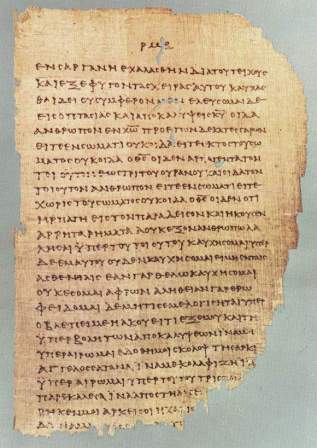 ΕΝ ϹΑΡΓΑΝΗ ΕΧΑΛΑϹΘΗΝ ΔΙΑ ΤΟΥ ΤΕΙΧΟΥϹ
ΚΑΙ ΕΞΕΦΥΓΟΝ ΤΑϹ ΧΕΙΡΑϹ ΑΥΤΟΥ ΚΑΥΧΑϹ
ΘΑΙ ΔΕΙ ΟΥ ϹΥΜΦΕΡΟΝ ΜΕΝ ΕΛΕΥϹΟΜΑΙ ΔΕ
ΕΙϹ ΟΠΤΑϹΙΑϹ ΚΑΙ ΑΠΟΚΑΛΥΨΕΙϹ Κ̅Υ̅ ΟΙΔΑ
ΑΝΘΡΩΠΟΝ ΕΝ Χ̅Ω̅ ΠΡΟ ΕΤΩΝ ΔΕΚΑΤΕϹϹΑΡΩΝ
ΕΙΤΕ ΕΝ ϹΩΜΑΤΙ ΟΥΚ ΟΙΔΑ ΕΙΤΕ ΕΚΤΟϹ ΤΟΥ ϹΩ
ΜΑΤΟϹ ΟΥΚ ΟΙΔΑ Ο Θ̅Ϲ̅ ΟΙΔΕΝ ΑΡΠΑΓΕΝΤΑ ΤΟΝ
ΤΟΙΟΥΤΟΝ ΕΩϹ ΤΡΙΤΟΥ ΟΥΡΑΝΟΥ ΚΑΙ ΟΙΔΑ ΤΟΝ
ΤΟΙΟΥΤΟΝ ΑΝΘΡΩΠΟΝ ΕΙΤΕ ΕΝ ϹΩΜΑΤΙ ΕΙΤΕ
ΧΩΡΙϹ ΤΟΥ ϹΩΜΑΤΟϹ ΟΥΚ ΟΙΔΑ Ο Θ̅Ϲ̅ ΟΙΔΕΝ ΟΤΙ
ΗΡΠΑΓΗ ΕΙϹ ΤΟΝ ΠΑΡΑΔΕΙϹΟΝ ΚΑΙ ΗΚΟΥϹΕΝ
ΑΡΡΗΤΑ ΡΗΜΑΤΑ Α ΟΥΚ ΕΞΟΝ ΑΝΘΡΩΠΩ ΛΑ
ΛΗϹΑΙ ΥΠΕΡ ΤΟΥ ΤΟΙΟΥΤΟΥ ΚΑΥΧΗϹΟΜΑΙ ΥΠΕΡ
ΔΕ ΕΜΑΥΤΟΥ ΟΥΔΕΝ ΚΑΥΧΗϹΟΜΑΙ ΕΙ ΜΗ ΕΝ ΤΑΙϹ
ΑϹΘΕΝΕΙΑΙϹ ΕΑΝ ΓΑΡ ΘΕΛΩ ΚΑΥΧΗϹΟΜΑΙ
ΟΥΚ ΕϹΟΜΑΙ ΑΦΡΩΝ ΑΛΗΘΕΙΑΝ ΓΑΡ ΕΡΩ
ΦΕΙΔΟΜΑΙ ΔΕ ΜΗ ΤΙϹ ΛΟΓΙϹΗΤΑΙ ΥΠΕΡ
Ο ΒΛΕΠΕΙ ΜΕ Η ΑΚΟΥΕΙ ΤΙ ΕΞ ΕΜΟΥ ΚΑΙ ΤΗ
ΥΠΕΡΒΟΛΗ ΤΩΝ ΑΠΟΚΑΛΥΨΕΩΝ ΙΝΑ ΜΗ
ΥΠΕΡΑΙΡΩΜΑΙ ΕΔΟΘΗ ΜΟΙ ϹΚΟΛΟΨ ΤΗ ϹΑΡΚΙ
ΑΓΓΕΛΟϹ ϹΑΤΑΝΑ ΙΝΑ ΜΕ ΚΟΛΑΦΙΖΗ
ΥΠΕΡΑΙΡΩΜΑΙ ΥΠΕΡ ΤΟΥΤΟΥ ΤΡΙϹ
ΠΑΡΕΚΑΛΕϹΑ ΙΝΑ ΑΠΟϹΤΗ